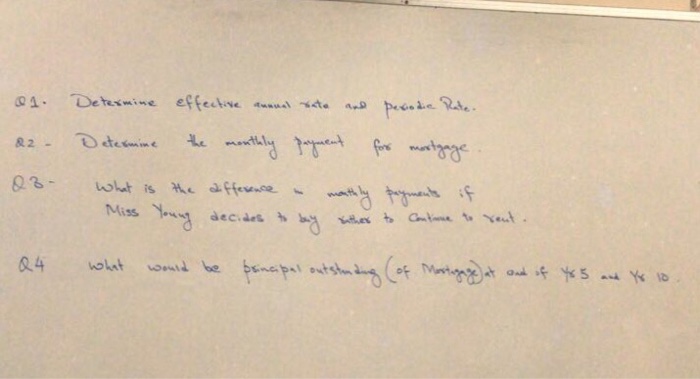 Q1. Determine effective annual rate and periodic Rate.
Q2 - Determine the monthly payment for mortgage.
Q3 - What is the difference in monthly payments if
Miss Young decides to buy rather to Continue to rent.
Q4 What would be principal outstanding (of Mortgage) at end of Yr 5 and Yr 10.